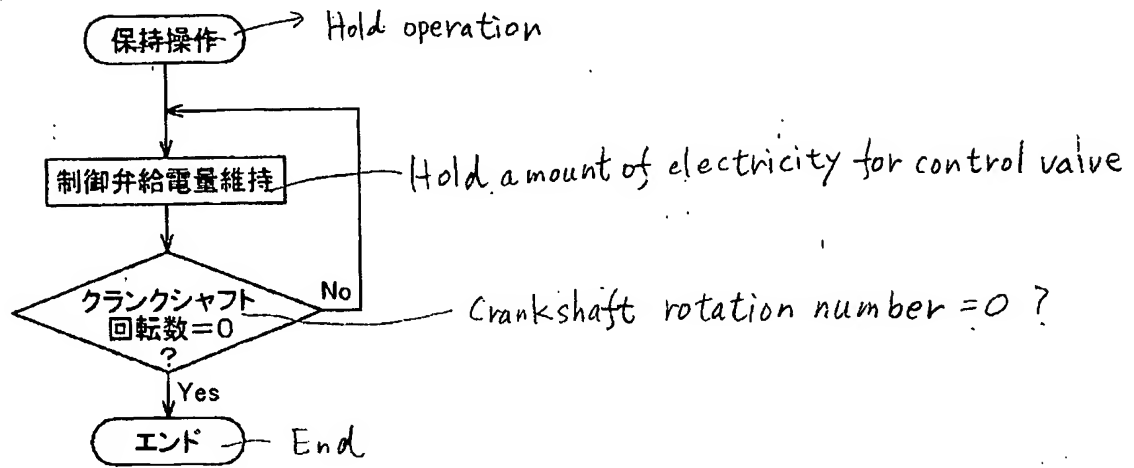 保持操作
Hold operation
制御弁給電量維持
Hold amount of electricity for control valve
クランクシャフト
回転数=0
?
No
Crankshaft rotation number = 0 ?
Yes
エンド
End